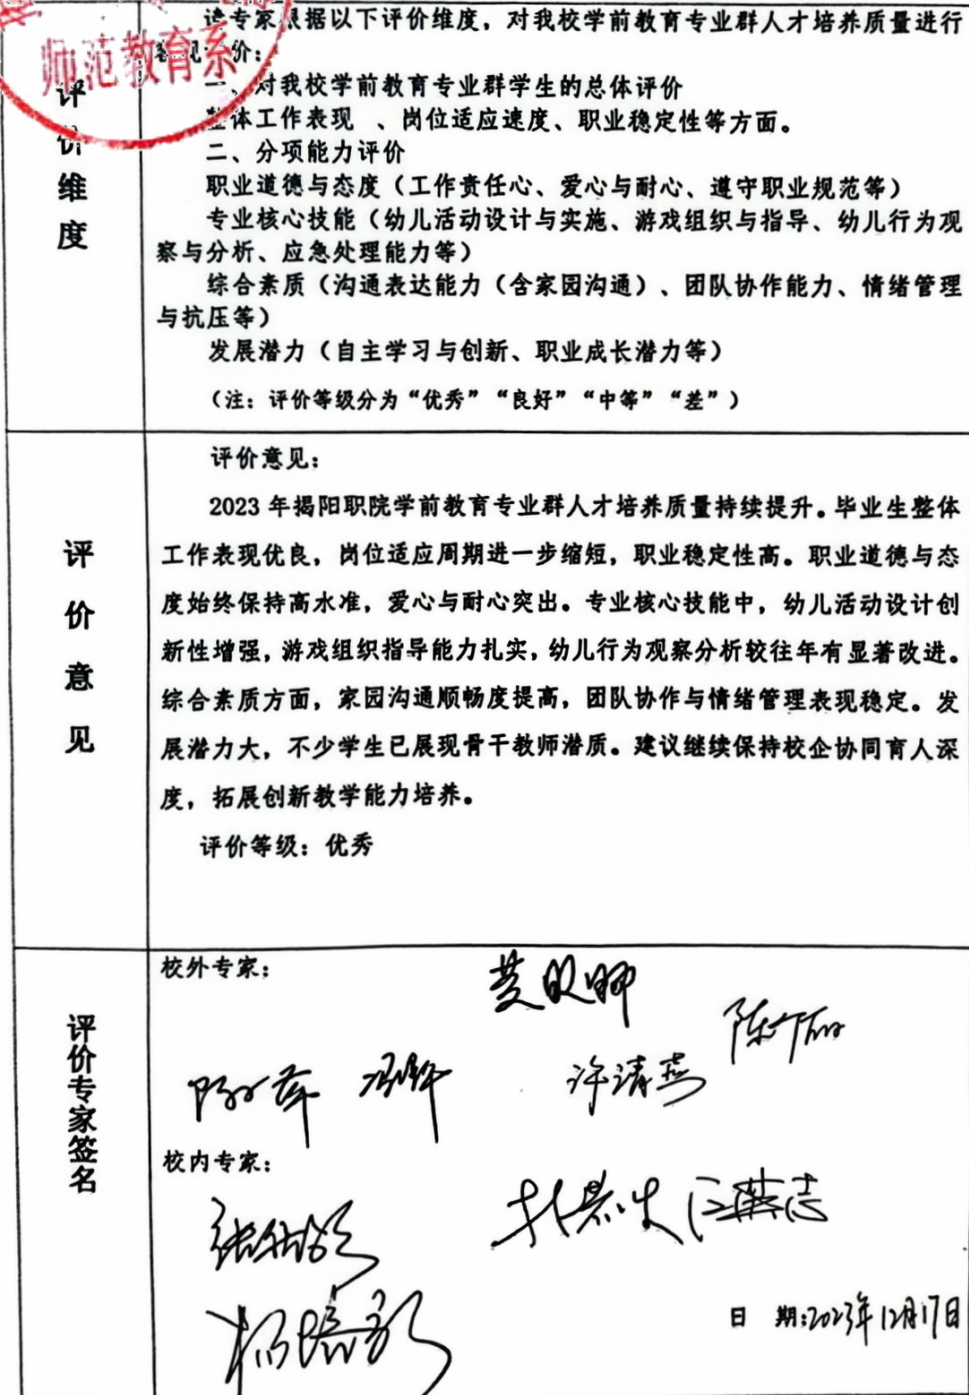 请专家根据以下评价维度，对我校学前教育专业群人才培养质量进行
客观评价：
师范教育系
一、对我校学前教育专业群学生的总体评价
整体工作表现 、岗位适应速度、职业稳定性等方面。
二、分项能力评价
职业道德与态度（工作责任心、爱心与耐心、遵守职业规范等）
专业核心技能（幼儿活动设计与实施、游戏组织与指导、幼儿行为观
察与分析、应急处理能力等）
综合素质（沟通表达能力（含家园沟通）、团队协作能力、情绪管理
与抗压等）
发展潜力（自主学习与创新、职业成长潜力等）
（注：评价等级分为“优秀”“良好”“中等”“差”）
评价维度
评价意见：
2023 年揭阳职院学前教育专业群人才培养质量持续提升。毕业生整体
工作表现优良，岗位适应周期进一步缩短，职业稳定性高。职业道德与态
度始终保持高水准，爱心与耐心突出。专业核心技能中，幼儿活动设计创
新性增强，游戏组织指导能力扎实，幼儿行为观察分析较往年有显著改进。
综合素质方面，家园沟通顺畅度提高，团队协作与情绪管理表现稳定。发
展潜力大，不少学生已展现骨干教师潜质。建议继续保持校企协同育人深
度，拓展创新教学能力培养。
评价等级：优秀
评价意见
校外专家：
许清燕
校内专家：
评价专家签名
日 期：2023年12月17日